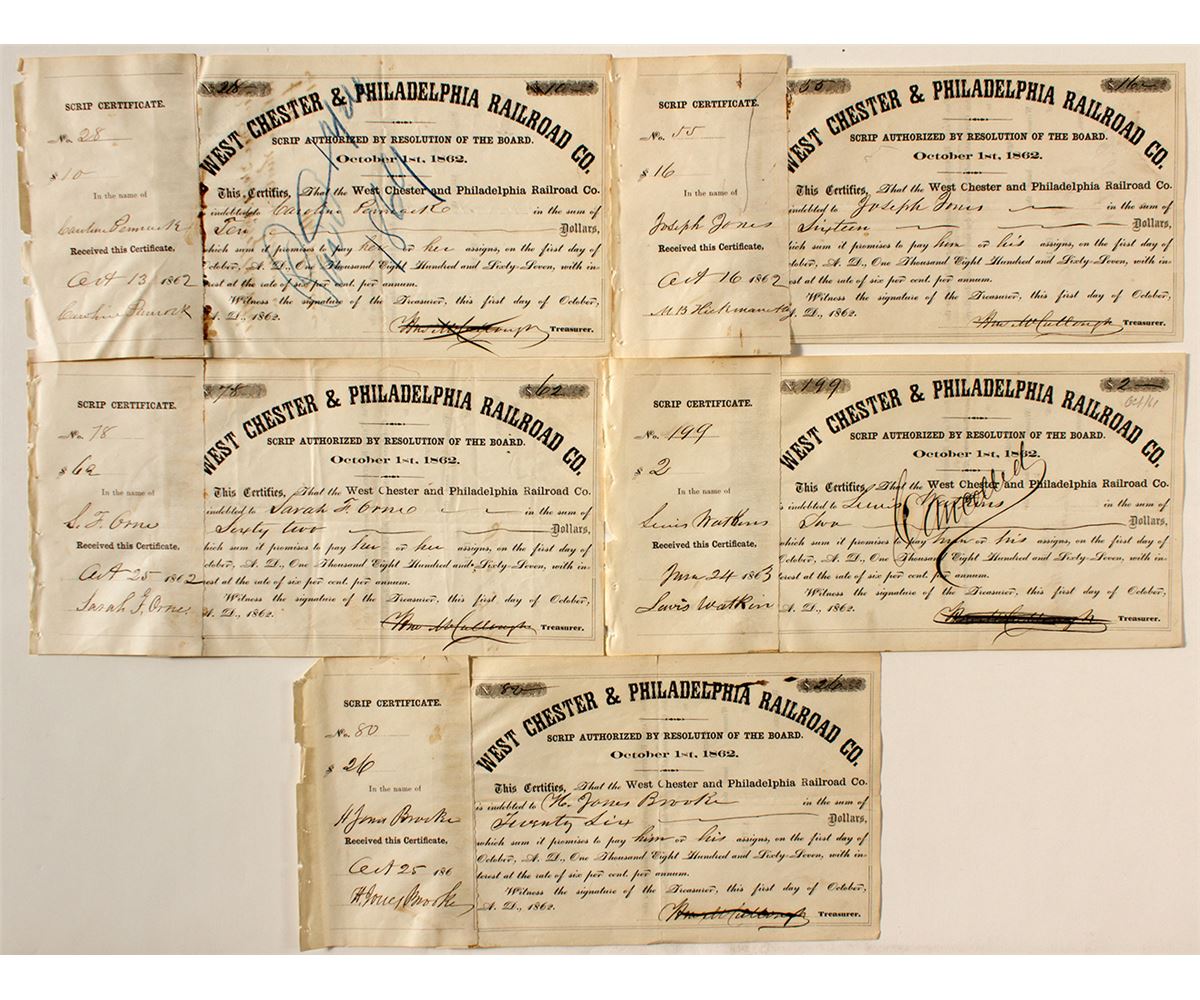 SCRIP CERTIFICATE.
No. 28
$ 10
In the name of
Caroline Pennock
Received this Certificate.
Oct 13 1862
Caroline Pennock
28 $ 10
WEST CHESTER & PHILADELPHIA RAILROAD CO.
SCRIP AUTHORIZED BY RESOLUTION OF THE BOARD.
October 1st, 1862.
This Certifies, That the West Chester and Philadelphia Railroad Co.
is indebted to Caroline Pennock in the sum of
Ten Dollars,
which sum it promises to pay her or her assigns, on the first day of
October, A. D., One Thousand Eight Hundred and Sixty-Seven, with in-
terest at the rate of six per cent. per annum.
Witness the signature of the Treasurer, this first day of October,
A. D., 1862.
Treasurer.
SCRIP CERTIFICATE.
No. 55
$ 16
In the name of
Joseph Jones
Received this Certificate.
Oct 16 1862
55 $ 16
WEST CHESTER & PHILADELPHIA RAILROAD CO.
SCRIP AUTHORIZED BY RESOLUTION OF THE BOARD.
October 1st, 1862.
This Certifies, That the West Chester and Philadelphia Railroad Co.
is indebted to Joseph Jones in the sum of
Sixteen Dollars,
which sum it promises to pay him or his assigns, on the first day of
October, A. D., One Thousand Eight Hundred and Sixty-Seven, with in-
terest at the rate of six per cent. per annum.
Witness the signature of the Treasurer, this first day of October,
A. D., 1862.
McCullough Treasurer.
SCRIP CERTIFICATE.
No. 78
$ 62
In the name of
S. F. Orne
Received this Certificate.
Oct 25 1862
Sarah F. Orne
78 $ 62
WEST CHESTER & PHILADELPHIA RAILROAD CO.
SCRIP AUTHORIZED BY RESOLUTION OF THE BOARD.
October 1st, 1862.
This Certifies, That the West Chester and Philadelphia Railroad Co.
is indebted to Sarah F. Orne in the sum of
Sixty two Dollars,
which sum it promises to pay her or her assigns, on the first day of
October, A. D., One Thousand Eight Hundred and Sixty-Seven, with in-
terest at the rate of six per cent. per annum.
Witness the signature of the Treasurer, this first day of October,
A. D., 1862.
McCullough Treasurer.
SCRIP CERTIFICATE.
No. 199
$ 2
In the name of
Lewis Watkins
Received this Certificate.
24 1863
Lewis Watkin
199 $ 2
WEST CHESTER & PHILADELPHIA RAILROAD CO.
SCRIP AUTHORIZED BY RESOLUTION OF THE BOARD.
October 1st, 1862.
This Certifies, That the West Chester and Philadelphia Railroad Co.
is indebted to Lewis Watkins in the sum of
Two Dollars,
Cancelled
which sum it promises to pay him or his assigns, on the first day of
October, A. D., One Thousand Eight Hundred and Sixty-Seven, with in-
terest at the rate of six per cent. per annum.
Witness the signature of the Treasurer, this first day of October,
A. D., 1862.
Treasurer.
SCRIP CERTIFICATE.
No. 80
$ 26
In the name of
H Jones Brooke
Received this Certificate.
Oct 25 186
H. Jones Brooke
80 $ 26
WEST CHESTER & PHILADELPHIA RAILROAD CO.
SCRIP AUTHORIZED BY RESOLUTION OF THE BOARD.
October 1st, 1862.
This Certifies, That the West Chester and Philadelphia Railroad Co.
is indebted to H. Jones Brooke in the sum of
Twenty Six Dollars,
which sum it promises to pay him or his assigns, on the first day of
October, A. D., One Thousand Eight Hundred and Sixty-Seven, with in-
terest at the rate of six per cent. per annum.
Witness the signature of the Treasurer, this first day of October,
A. D., 1862.
McCullough Treasurer.